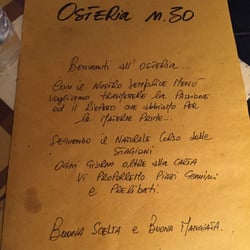 Osteria n.30
Benvenuti all'osteria...
Con il nostro semplice menù
vogliamo trasmettere la passione
ed il rispetto che abbiamo per
le materie prime...
Seguendo il naturale corso delle
stagioni
ogni giorno oltre alla carta
vi proporremo piatti genuini
e prelibati.
Buona scelta e buona mangiata.